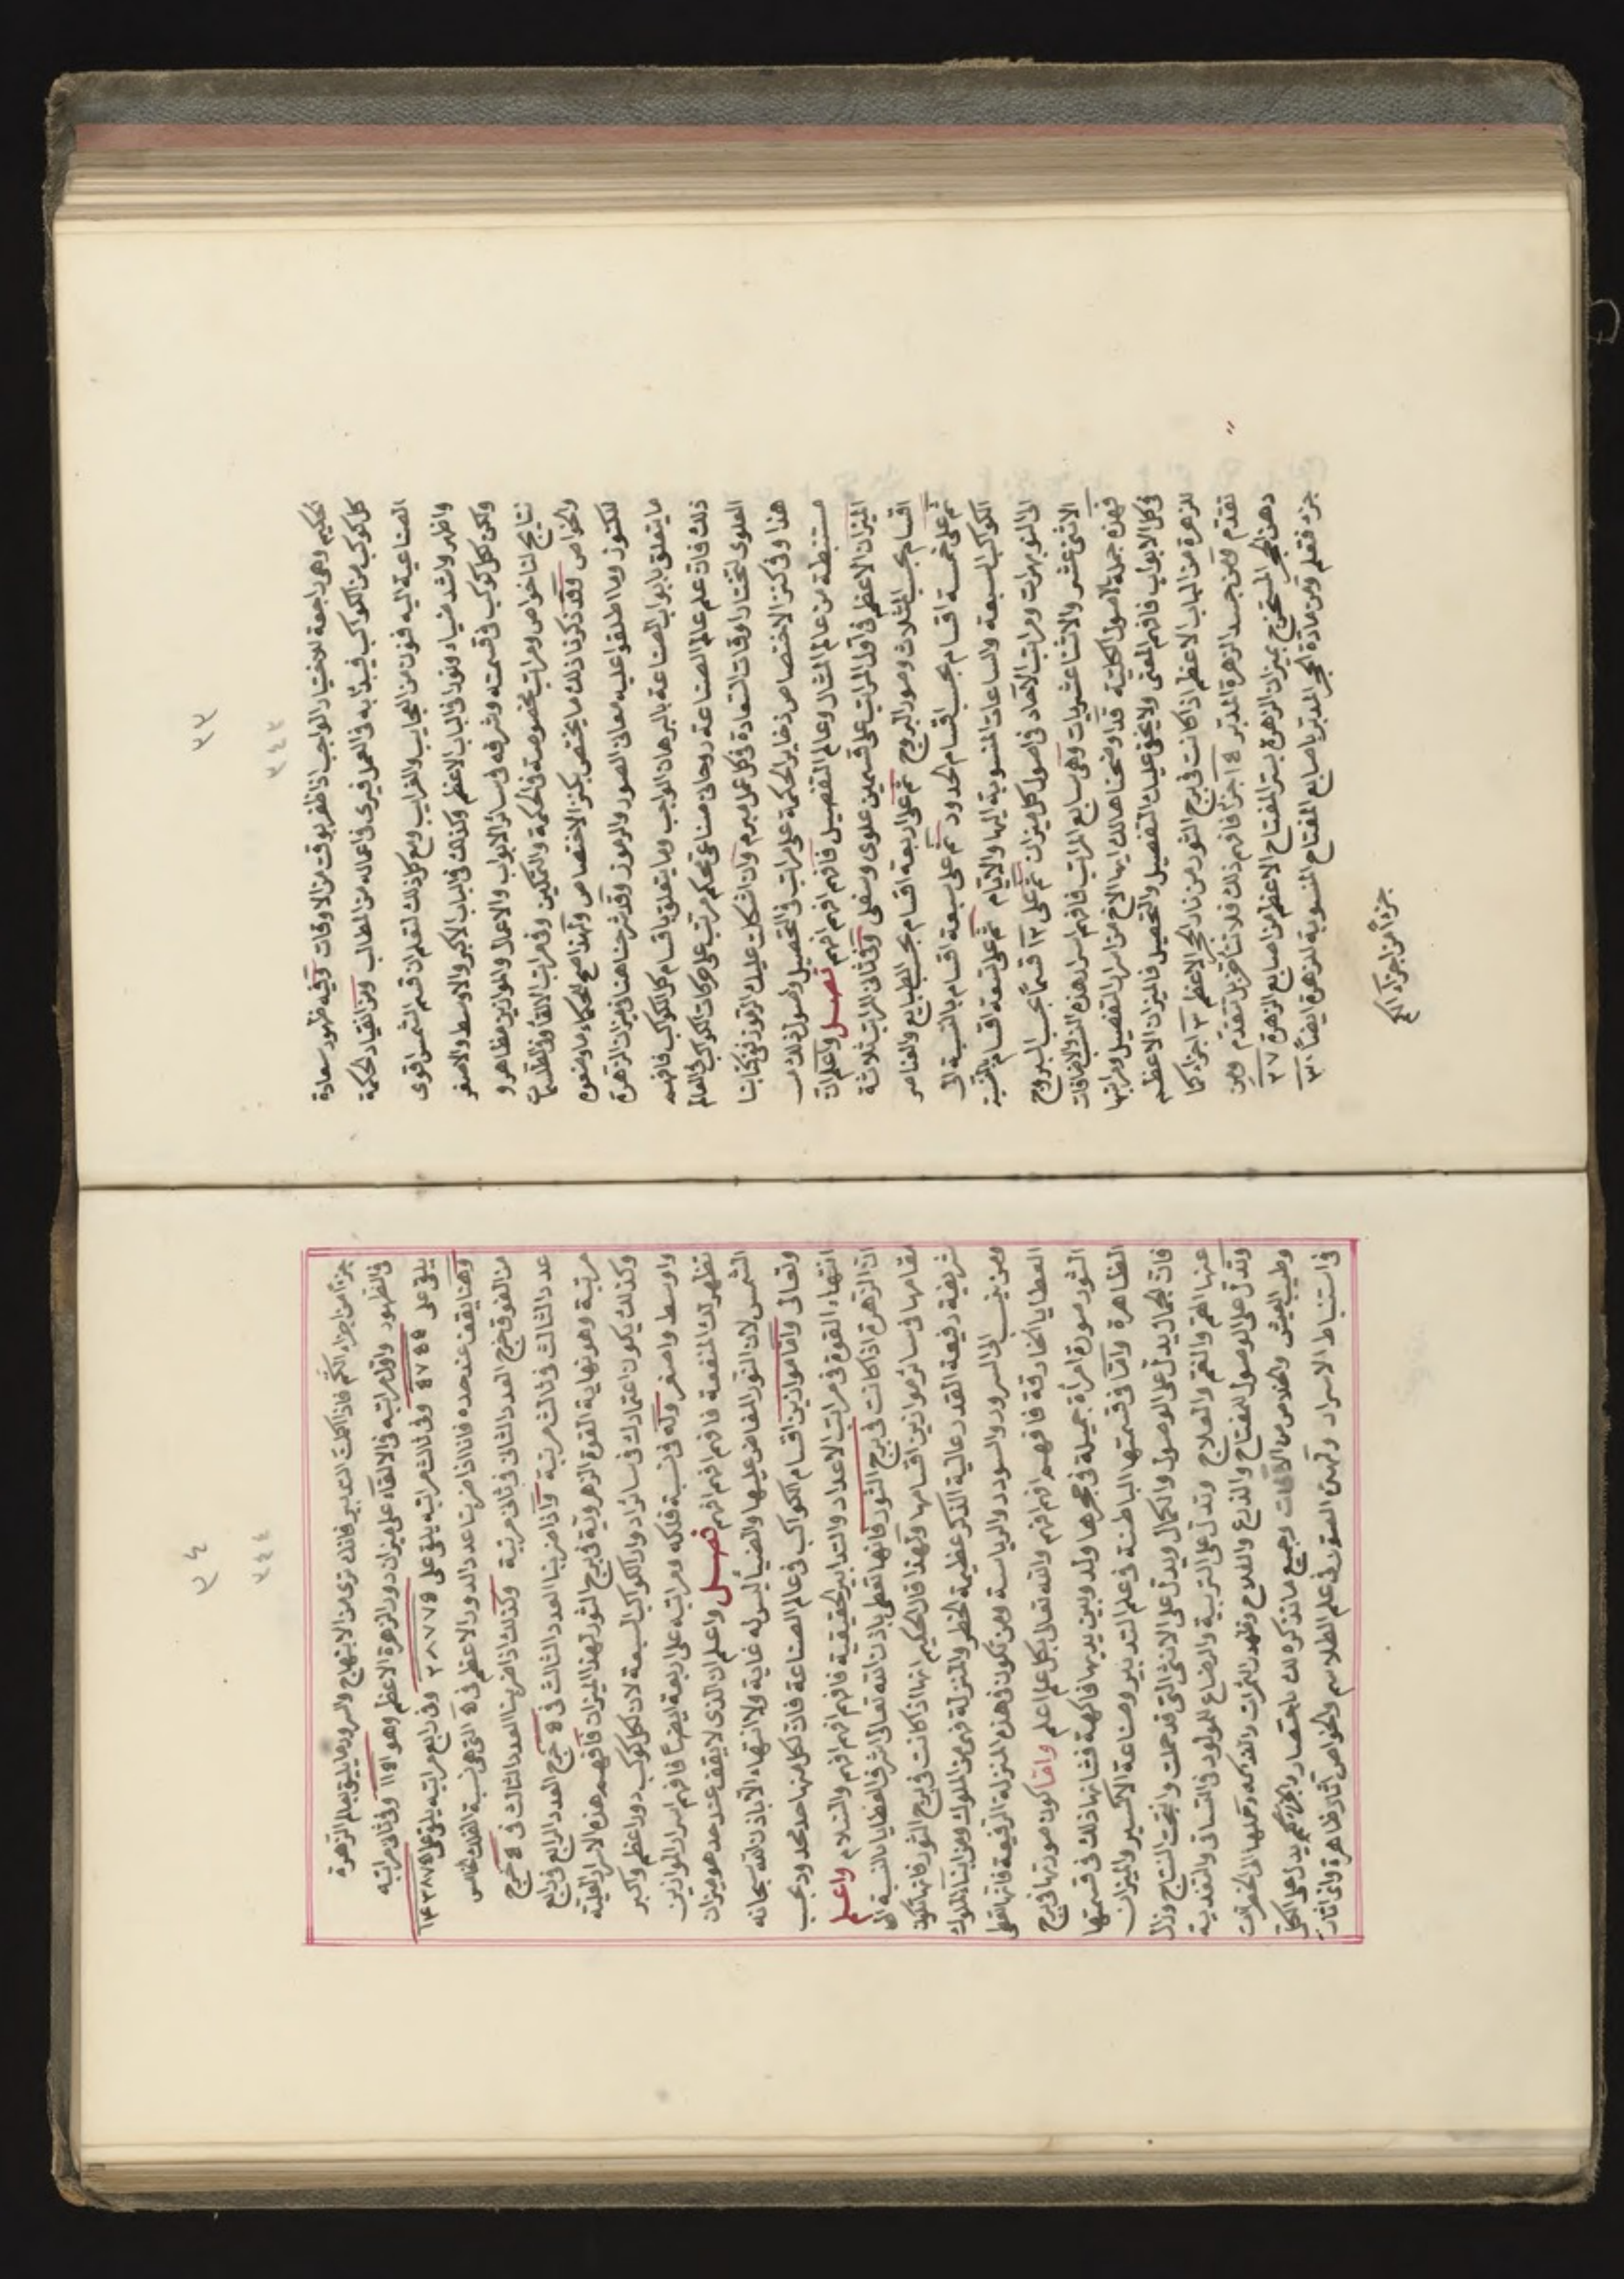 ٣٣
٣٤٣
الحكيم وهى راجعة لاختيار الواجب اذا ظفر بوقت من الاوقات وفيه ظهور سعادة
كل كوكب من الكواكب فيبدا به فى العمل فيرى فى اعماله من المطالب ومن انقياد الحكمة
الصناعية اليه فنون من العجايب والغرايب ومع كل ذلك لتعلم ان قسم الشمس اقوى
واظهر واشد ضياء ونورا فى الباب الاعظم وكذلك فى الباب الاكبر والاوسط والاصغر
ولكن لكل كوكب فى قسمته وشرفه فى سائر الابواب والاعمال والموازين مظاهر و
نتايج لنا خواص ومراتب مخصوصة فى الحكمة والتمكين وفى مراتب الالقاء وفى الطلسمات
والخواص وقد ذكرنا ذلك ما يختص بكنز الاختصاص ولهذا صح للحكماء ما وضعوه
للكنوز وما اطلقوا عليه معانى الصور والرموز وقد شرحنا هنا فى ميزان الزهرة
ما يتعلق بابواب الصناعة بالبرهان الواجب وما يتعلق باقسام كل الكواكب فافهم
ذلك فان علم عالم الصناعة روحانى صناعى محكم مرتب على حركات الكواكب فى العالم
العلوى لتختار اوقات السعادة فى كل عمل مبرم وان اشكلت عليك الرموز ففى كتابنا
هذا وفى كنز الاختصاص ذخاير الحكمة على مراتب فى التحصيل واصول ذلك
مستنبطة من عالم المثال وعالم التفصيل فافهم افهم افهم فصل واعلم ان
الميزان الاعظم فى اول المراتب على قسمين علوى وسفلى وفى ثانى المراتب ثلاثة
اقسام بحسب المثلاث وصور البروج ثم على اربعة اقسام بحسب الطبايع والعناصر
ثم على خمسة اقسام بحسب اقسام الحدود ثم على سبعة اقسام بالنسبة الى
الكواكب السبعة والساعات المنسوبة اليها والايام ثم على تسعة اقسام بالنسبة
الى النوبهرات ومراتب الاحاد فى اصول كل ميزان ثم على ١٢ قسمًا بحسب البروج
الاثنى عشر والاثنا عشريات وهى سابع المراتب فافهم اسرار هذه النسب والاضافات
فهذه جملة الاصول الكلية قد اوضحنا هالك ايها الاخ من اسرار التفصيل ومراتبها
فى كل الابواب فافهم المعنى ولا يخفى عليك التفصيل والتحصيل فالميزان الاعظم
للزهرة من الباب الاعظم اذا كانت فى برج الثور من نار الحجر الاعظم ٣ اجزا كما
تقدم ومن جسد الزهرة المدبر ١٤ جزا فافهم ذلك فلا نتاخر بل نتقدم ومن
دهن الحجر المستخرج بميزان الزهرة بسر المفتاح الاعظم من اصابع الزهرة ٢٧
جزء فتعلم ومن مادة الحجر المدبر باصابع المفتاح المنسوبة للزهرة ايضًا ٣٠
جزءًا من اجزاء الكم
٣٤
٣٤٤
جزءًا من اجزاء الكم فاذا اكملت التدبير فانك ترى من الابتهاج والسرور ما يليق بعلم الزهرة
فى الظهور واقل مراتبه فى الالقاء على ميزان دور الزهرة الاعظم وهو ١١٥١ وفى ثانى مراتبه
يلقى على ٥٧٥٥ وفى ثالث مراتبه يلقى على ٢٨٧٧٥ وفى رابع مراتبه يلقى على ١٤٣٨٧٥
وهنا يقف عند حده فانا اذا ضربنا عدد الدور الاعظم فى ٥ التى هى نسبة الفلك الخامس
من الفوق خرج العدد الثانى فى ثانى مرتبة وكذلك اذا ضربنا العدد الثالث فى ٥ خرج
عدد الثالث فى ثالث مرتبة واذا ضربنا العدد الثالث فى ٥ خرج العدد الرابع فى رابع
مرتبة وهو نهاية القوة الزهروية فى برج الثور لهذا الميزان فافهم هذه الاسرار العلية
وكذلك يكون اعتمادك فى سائر ادوار الكواكب السبعة لان لكل كوكب دورا اعظم واكبر
واوسط واصغر وله فى نسبة فلكه ومراتبه على اربعة ايضًا فافهم اسرار الموازين
تظهر لك المنفعة فافهم افهم افهم فصل واعلم ان الذى لا يقف عند حد هو ميزان
الشمس لان النور الفائض عليها والضياء ليس له غاية ولا انتهاء الا باذن الله سبحانه
وتعالى واما موازين اقسام الكواكب فى عالم الصناعة فان لكل منها حد محدود بحسب
انتهاء القوة فى مراتب الاعداد والتدابير الحقيقية فافهم افهم افهم والسلام واعلم
ان الزهرة اذا كانت فى برج الثور فانها تعطى باذن الله تعالى اشرف العطايا بالنسبة الى
مقامها فى سائر موازين اقسامها ولهذا قال الحكيم انها اذا كانت فى برج الثور فانها تكون
شريفة رفيعة القدر عالية الذكر عظيمة الخطر والمنزلة فهى من الملوك ومن ابناء الملوك
ومن ينسب الى السرور والسودد والرياسة ومن تكون فى هذه المنزلة الرفيعة فانها تعطى
العطايا الخارقة فافهم افهم افهم والله تعالى بكل علم اعلم واما كون صورتها فى برج
الثور صورة امراة جميلة فى حجرها ولد وبين يديها فاكهة فشانها ذلك فى قسمتها
الظاهرة واما فى قسمتها الباطنة فى علم التدبير وصناعة الاكسير والميزان
فان الجمال يدل على الوصول والكمال ويدل على الانثى التى قد حملت وانتجت النتاج وزال
عنها الهم والغم والعلاج وتدل على التربية والرضاع للمولود فى التساقى والتغذية
وتدل على الوصول للمفتاح والذرع والفلاح وظهور الثمرات والفذاكهة وحملها الى الحضرات
وطيب العيش والخلاص من الافات وجميع ما نذكره لك باختصار والجزء كم يدل على الكل
فى استنباط الاسرار ولهذه الصور فى علم الطلاسم والخواص اثار ظاهرة واى اثار